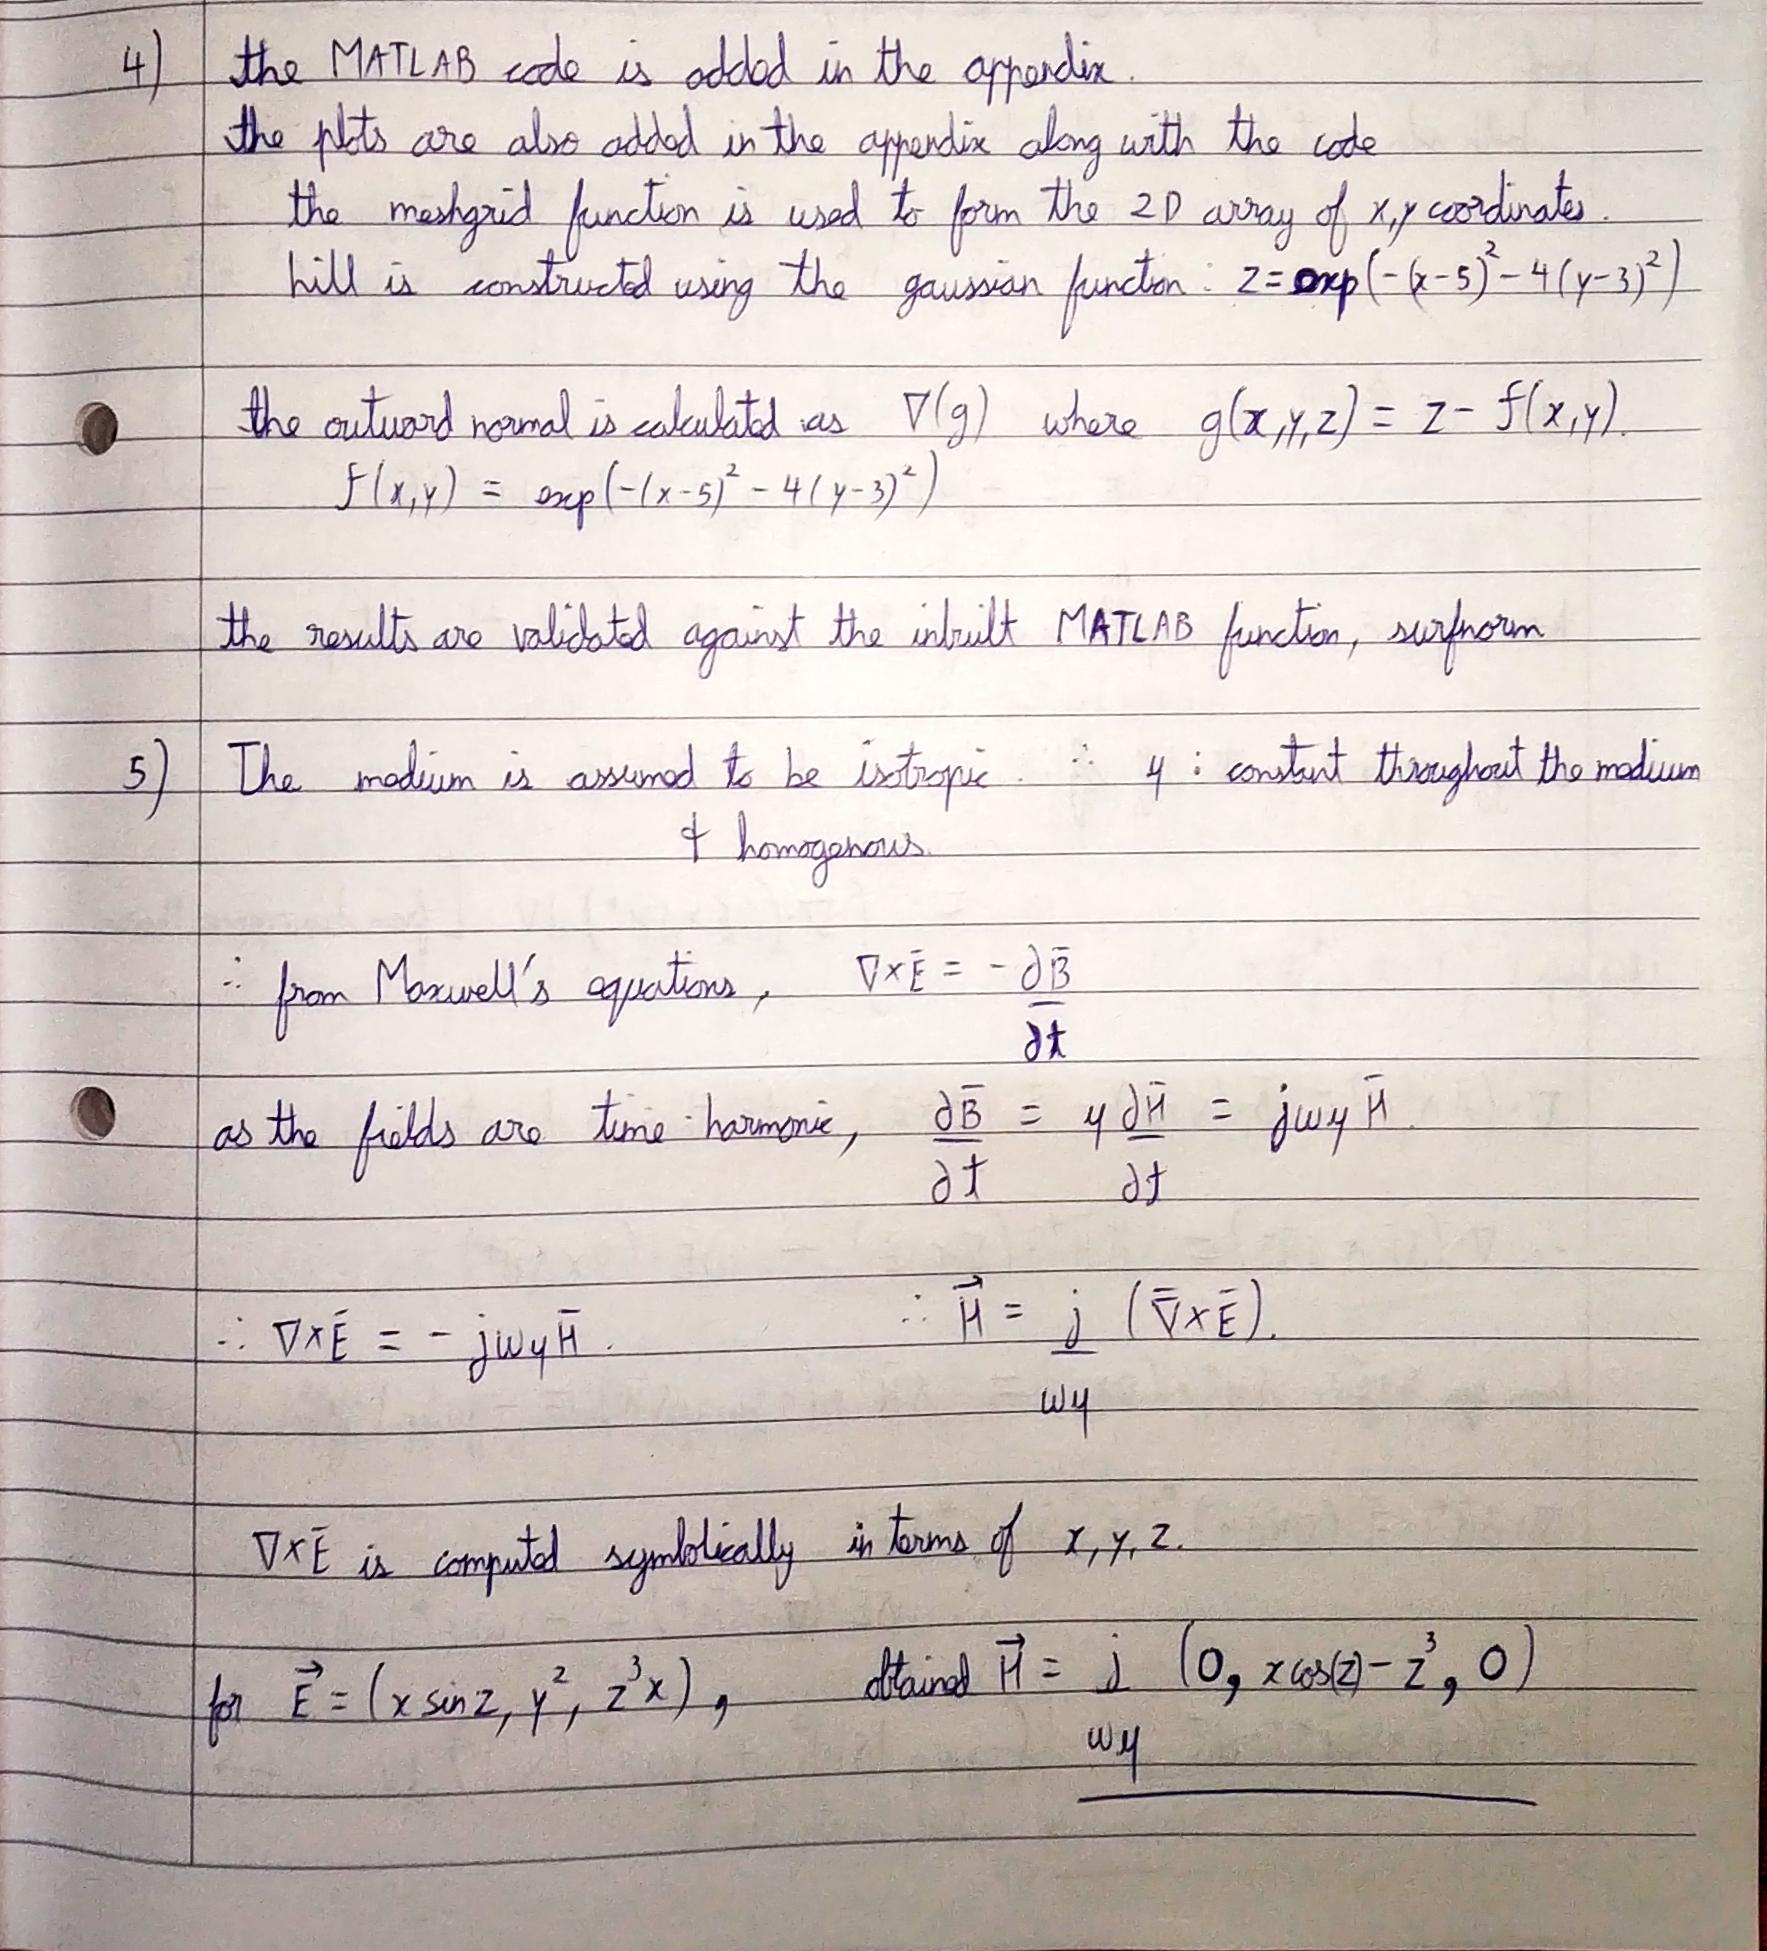 4) the MATLAB code is added in the appendix.
the plots are also added in the appendix along with the code
the meshgrid function is used to form the 2D array of x,y coordinates.
hill is constructed using the gaussian function : z = exp(-(x-5)² - 4(y-3)²)
the outward normal is calculated as ∇(g) where g(x,y,z) = z - f(x,y).
f(x,y) = exp(-(x-5)² - 4(y-3)²)
the results are validated against the inbuilt MATLAB function, surfnorm
5) The medium is assumed to be isotropic. ∴ μ : constant throughout the medium
& homogenous.
∴ from Maxwell's equations, ∇×Ē = -∂B̄/∂t
as the fields are time-harmonic, ∂B̄/∂t = μ ∂H̄/∂t = jωμH̄.
∴ ∇×Ē = -jωμH̄. ∴ H⃗ = j/ωμ (∇̄×Ē).
∇×Ē is computed symbolically in terms of x, y, z.
for E⃗ = (x sin z, y², z³x), obtained H⃗ = j/ωμ (0, x cos(z) - z³, 0)